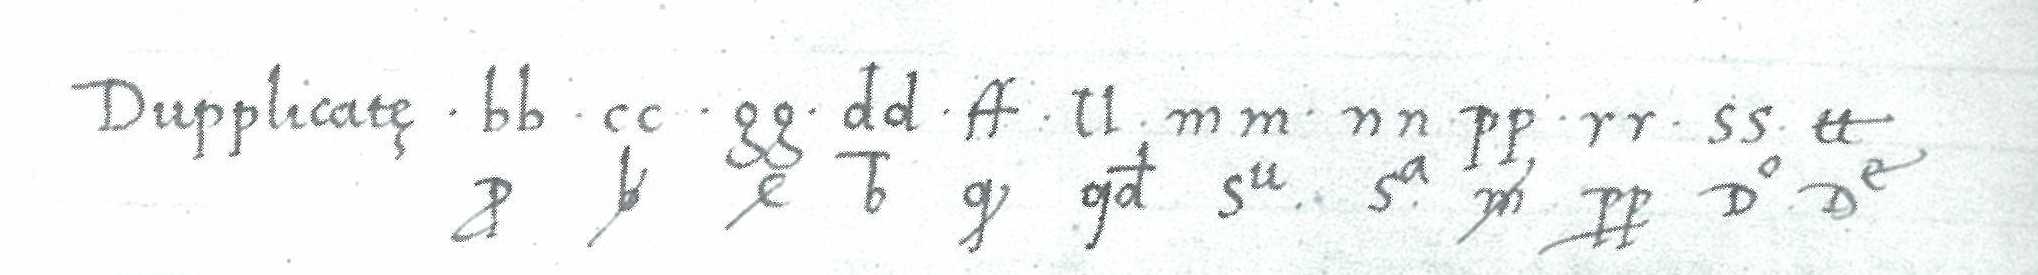 Dupplicatę · bb · cc · gg · dd · ff · ll · mm · nn · pp · rr · ss · tt
ꝓ b̸ c̸ b̄ ꝙ gđ sᵘ · sᵃ · m̸ pp Dᵒ · Dᵉ